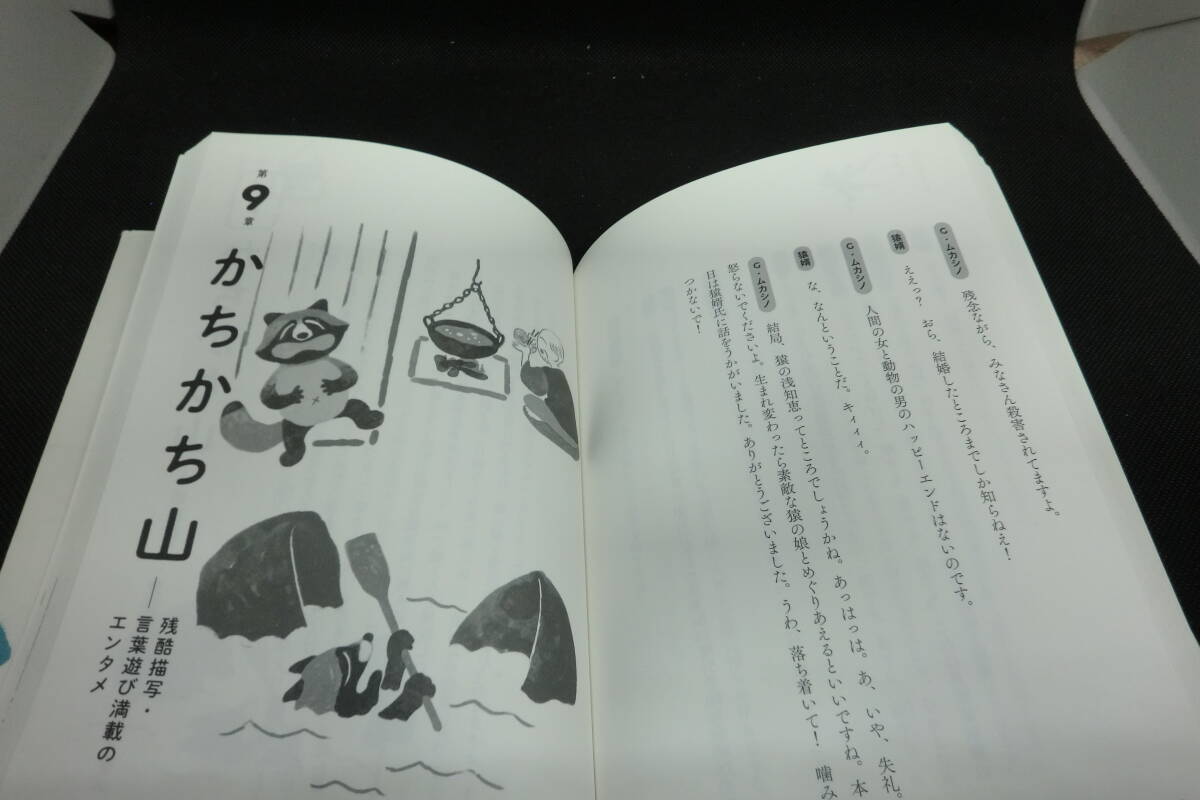 G・ムカシノ 残念ながら、みなさん殺害されてますよ。
猿婿 ええっ? おら、結婚したところまでしか知らねえ!
G・ムカシノ 人間の女と動物の男のハッピーエンドはないのです。
猿婿 な、なんということだ。キィィィ。
G・ムカシノ 結局、猿の浅知恵ってところでしょうかね。あっはっは。あ、いや、失礼。
怒らないでくださいよ。生まれ変わったら素敵な猿の娘とめぐりあえるといいですね。本
日は猿婿氏に話をうかがいました。ありがとうございました。うわ、落ち着いて! 噛み
つかないで!
第9章
かちかち山
──残酷描写・
言葉遊び満載の
エンタメ